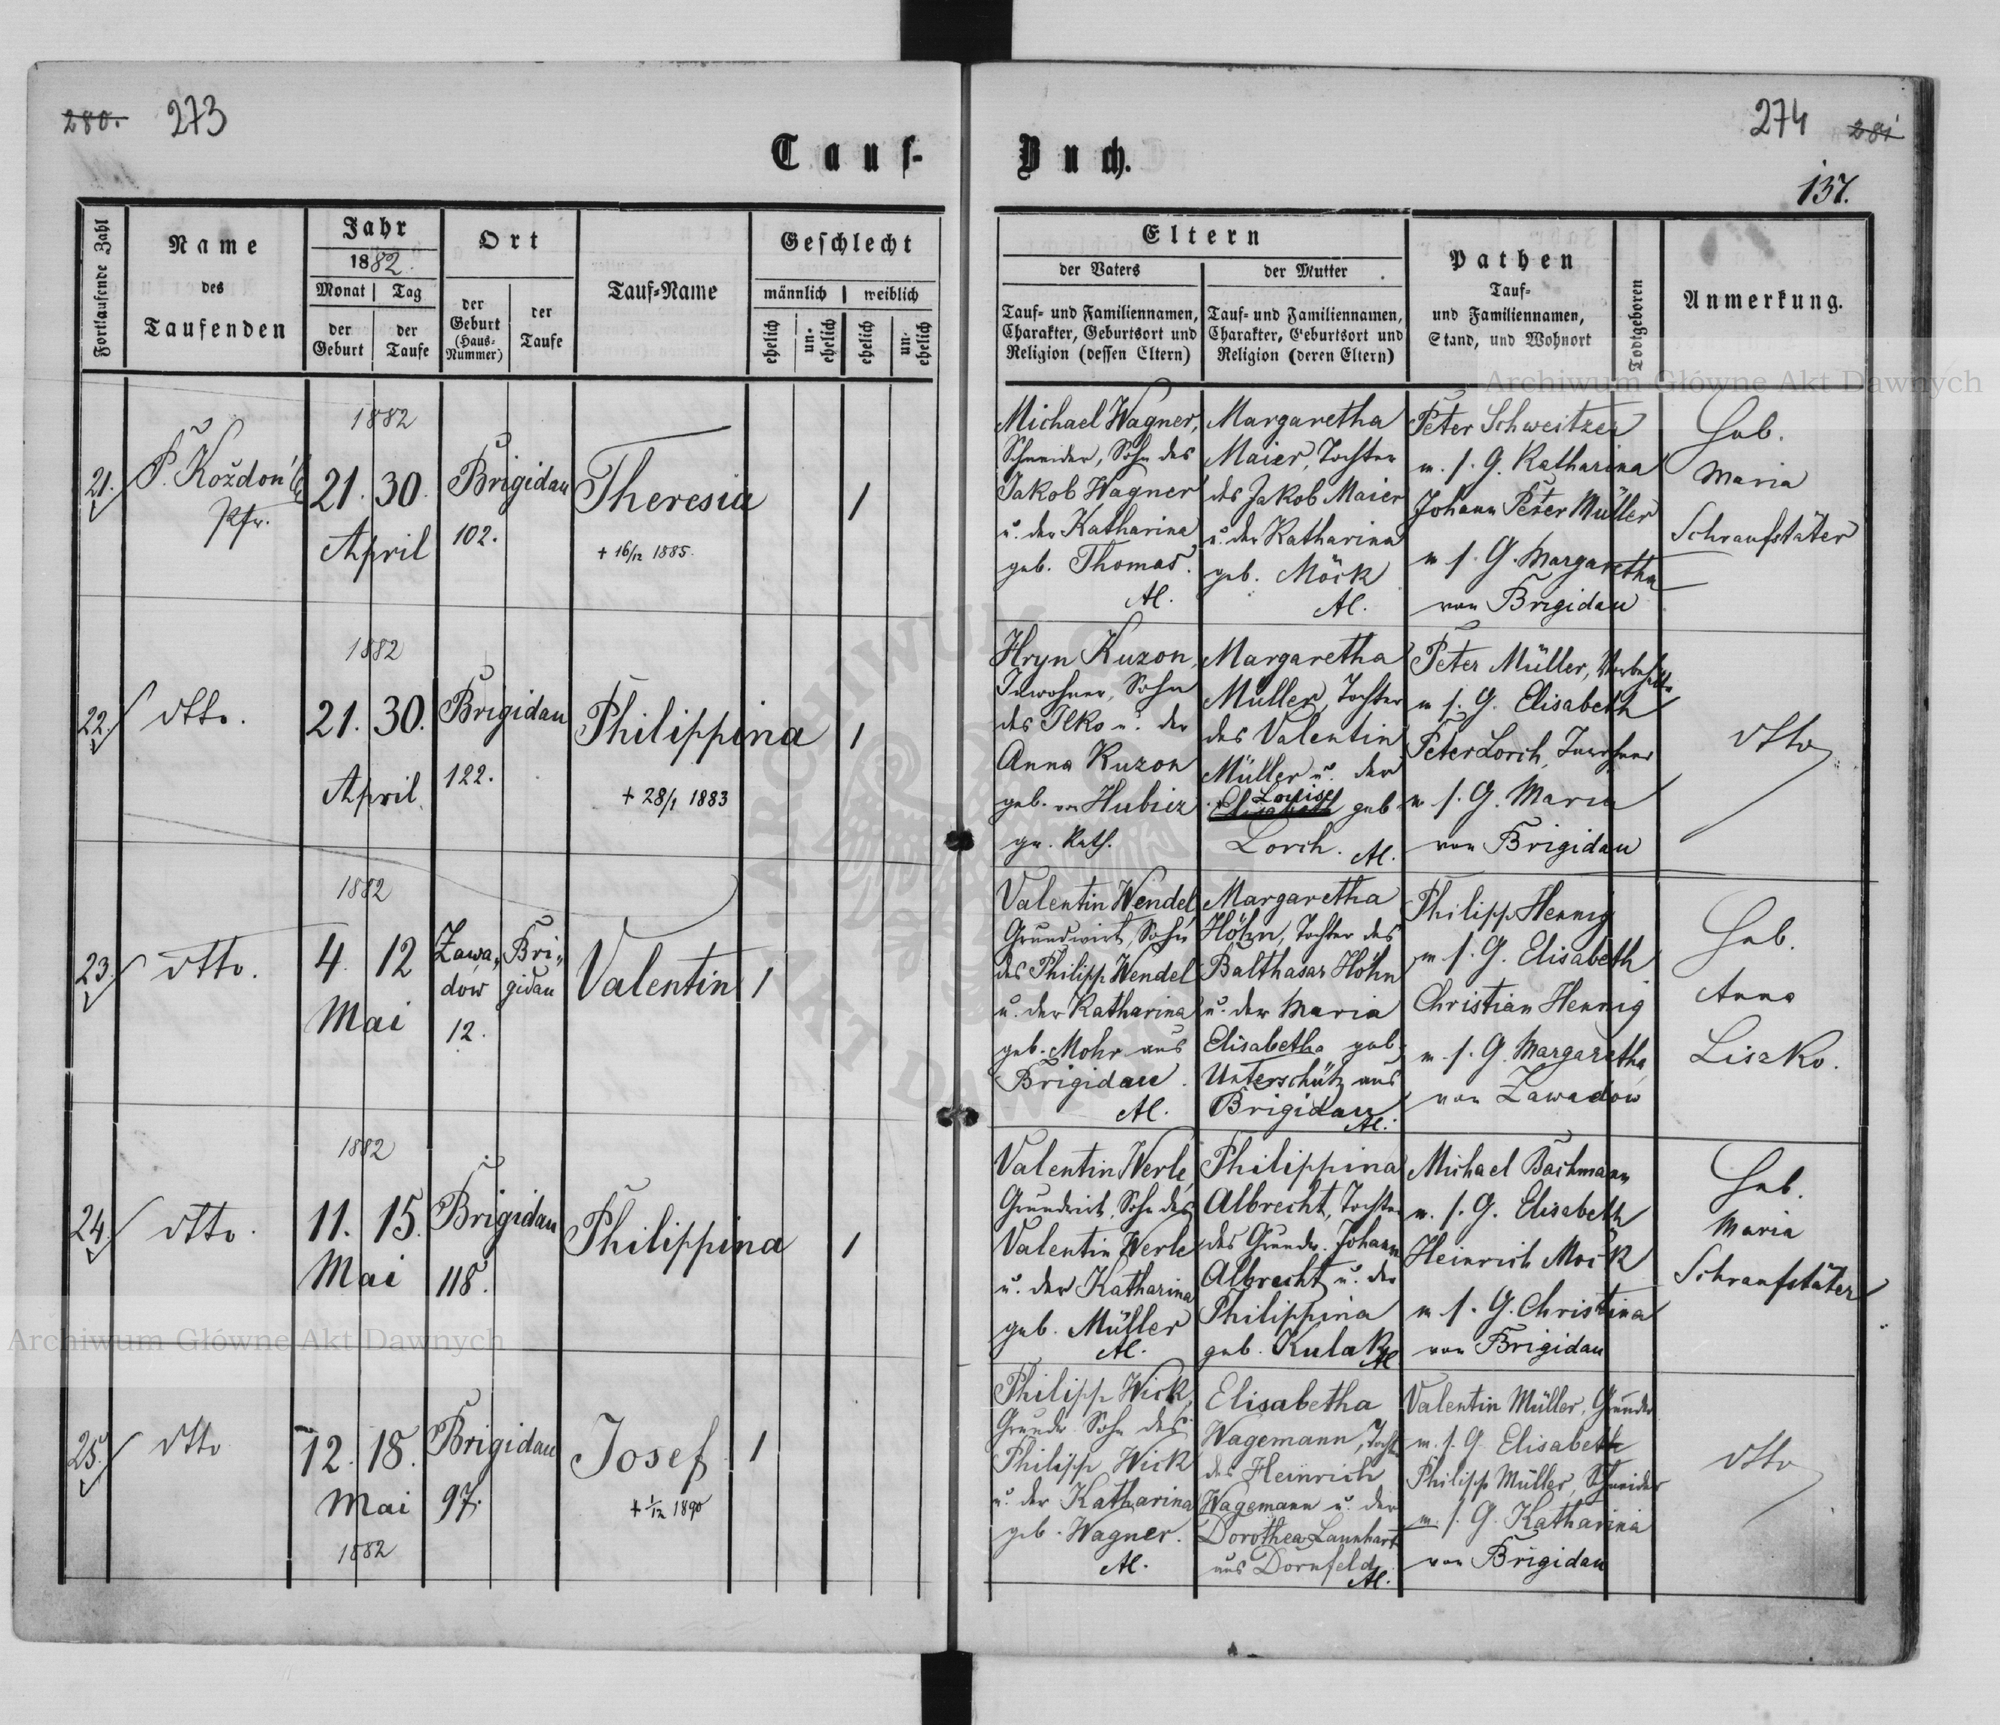 280. 273
274 281
137.
Tauf- Buch.
Fortlaufende Zahl
Name
des
Taufenden
Jahr
1882.
Monat Tag
der Geburt
der Taufe
Ort
der
Geburt
(Haus-
Nummer)
der
Taufe
Tauf-Name
Geschlecht
männlich weiblich
ehelich
un-
ehelich
ehelich
un-
ehelich
Eltern
der Vaters
der Mutter
Tauf- und Familiennamen,
Charakter, Geburtsort und
Religion (dessen Eltern)
Tauf- und Familiennamen,
Charakter, Geburtsort und
Religion (deren Eltern)
Pathen
Tauf-
und Familiennamen,
Stand, und Wohnort
Todtgeboren
Anmerkung.
21.
P. Koždoń
Pfr.
1882
21. 30.
April
Brigidau
102.
Theresia
+ 16/12 1885.
1
Michael Wagner,
Schneider, Sohn des
Jakob Wagner
u. der Katharina
geb. Thomas.
Al.
Margaretha
Maier, Tochter
des Jakob Maier
u. der Katharina
geb. Möck
Al.
Peter Schweitzer
m. s. G. Katharina
Johann Peter Müller
m s. G. Margaretha
von Brigidau
Heb.
Maria
Schraufstäter
22.
dtto.
1882
21. 30.
April.
Brigidau
122.
Philippina
+ 28/1 1883
1
Hryn Kuzon,
Inwohner, Sohn
des Ilko u. der
Anna Kuzon
geb. von Hubicz
gr. Kath.
Margaretha
Müller, Tochter
des Valentin
Müller u. der
Louise
Elisabeth geb
Lorch. Al.
Peter Müller,
m s. G. Elisabeth
Peter Lorch, Inwohner
m s. G. Maria
von Brigidau
dtto
23.
dtto.
1882
4. 12
Mai
Zawa-
dów
12.
Bri-
gidau
Valentin
1
Valentin Wendel,
Grundwirt, Sohn
des Philipp Wendel
u. der Katharina
geb. Mohr aus
Brigidau.
Al.
Margaretha
Höhn, Tochter des
Balthasar Höhn
u. der Maria
Elisabetha geb.
Unterschütz aus
Brigidau
Al.
Philipp Hennig
m s. G. Elisabeth
Christian Hennig
m. s. G. Margaretha
von Zawadów
Heb.
Anna
Liszko.
24.
dtto.
1882
11. 15.
Mai
Brigidau
118.
Philippina
1
Valentin Werle,
Grundwirt, Sohn des
Valentin Werle
u. der Katharina
geb. Müller
Al.
Philippina
Albrecht, Tochter
des Grundw. Johann
Albrecht u. der
Philippina
geb. Kulak
Al
Michael Bachmann
m. s. G. Elisabeth
Heinrich Mock
m s. G. Christina
von Brigidau
Heb.
Maria
Schraufstäter
25.
dtto
12. 18.
Mai
1882
Brigidau
97.
Josef
+ 1/12 1890
1
Philipp Wick,
Grundw. Sohn des
Philipp Wick
u. der Katharina
geb. Wagner.
Al.
Elisabetha
Wagemann, Tocht
des Heinrich
Wagemann u. der
Dorothea Launhart
aus Dornfeld
Al.
Valentin Müller, Grundw
m. s. G. Elisabeth
Philipp Müller, Schneider
m. s. G. Katharina
von Brigidau
dtto
Archiwum Główne Akt Dawnych
Archiwum Główne Akt Dawnych